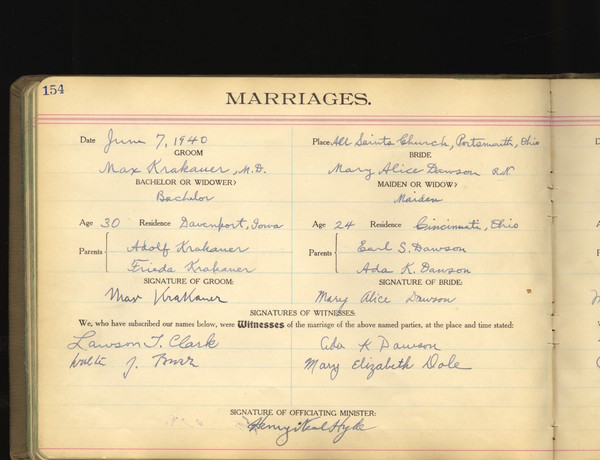 154
MARRIAGES.
Date June 7, 1940 Place All Saints Church, Portsmouth, Ohio
GROOM BRIDE
Max Krakauer, M.D. Mary Alice Dawson R.N
BACHELOR OR WIDOWER? MAIDEN OR WIDOW?
Bachelor Maiden
Age 30 Residence Davenport, Iowa Age 24 Residence Cincinnati, Ohio
Parents Adolf Krakauer Parents Earl S. Dawson
Frieda Krakauer Ada K. Dawson
SIGNATURE OF GROOM: SIGNATURE OF BRIDE:
Max Krakauer Mary Alice Dawson
SIGNATURES OF WITNESSES:
We, who have subscribed our names below, were Witnesses of the marriage of the above named parties, at the place and time stated:
Lawson T. Clark Ada K Dawson
J. Mary Elizabeth Dole
SIGNATURE OF OFFICIATING MINISTER:
Henry Neal Hyde